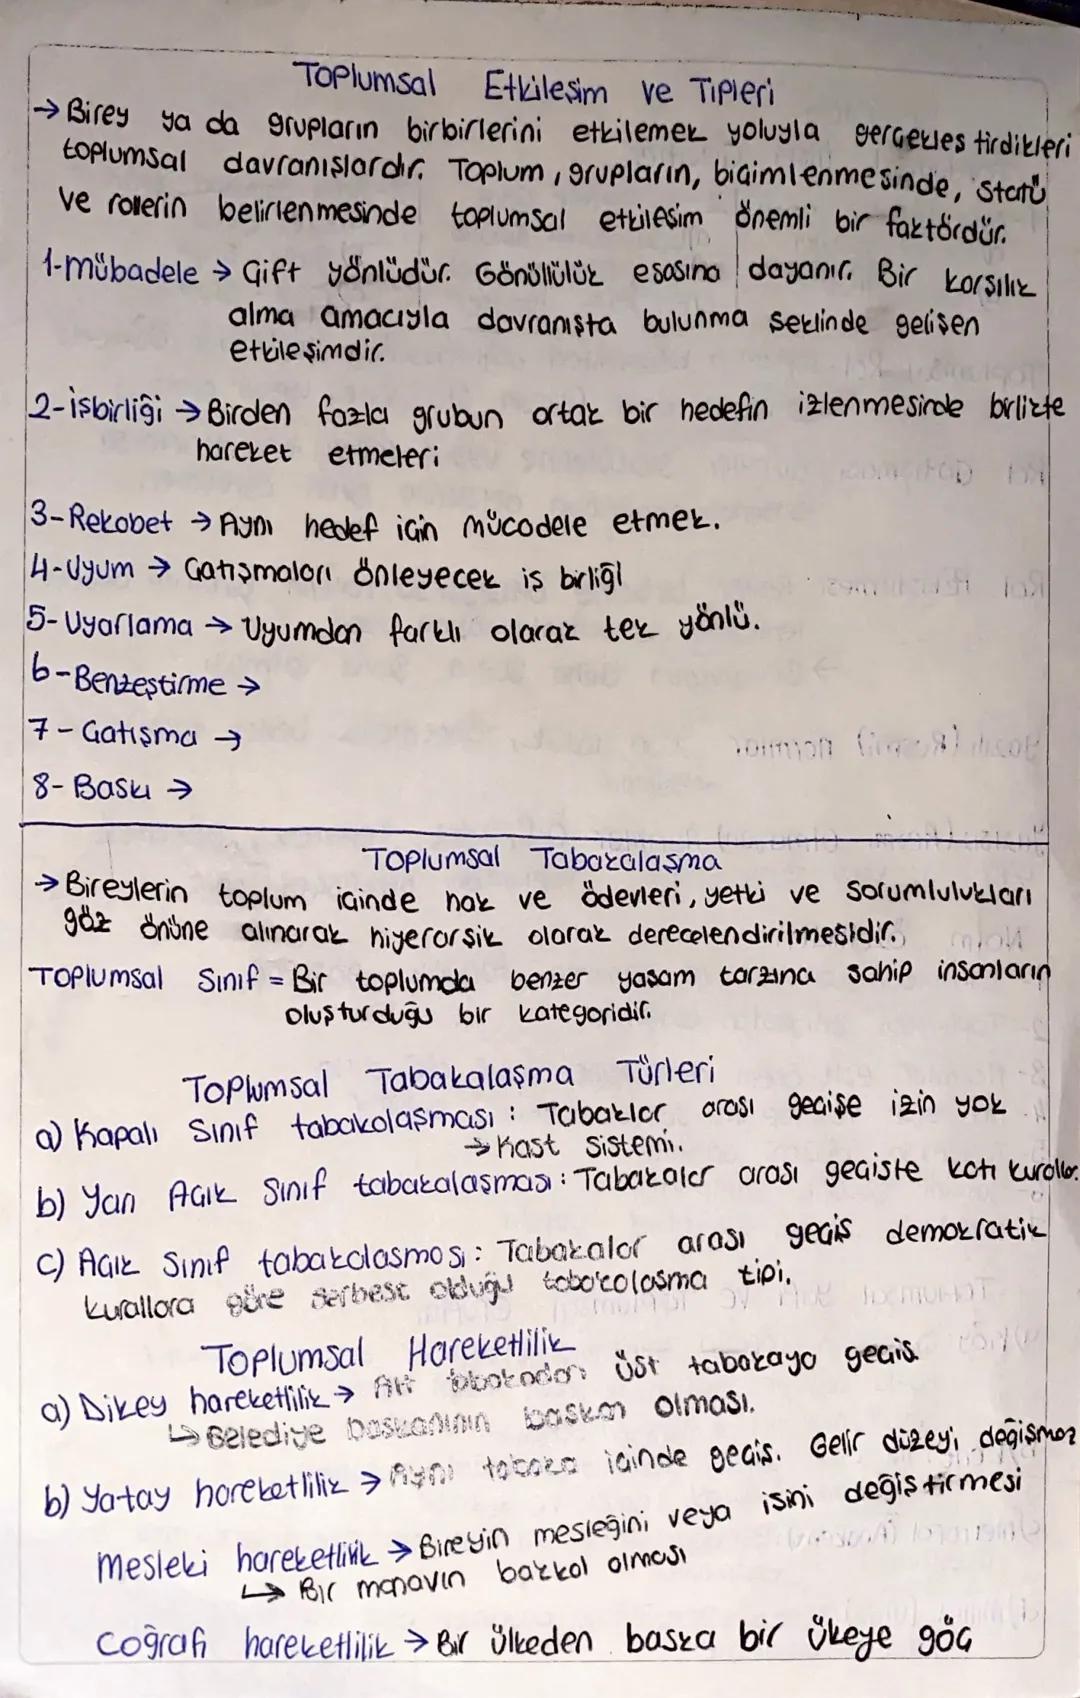 Toplumsal Etkileşim ve Tipleri
→ Birey ya da grupların birbirlerini etkilemek yoluyla gerçekleştirdikleri
toplumsal davranışlardır. Toplum, grupların, biçimlenmesinde, statü
ve rollerin belirlenmesinde toplumsal etkileşim önemli bir faktördür.
1-mübadele → Çift yönlüdür. Gönüllülük esasına dayanır. Bir karşılık
alma amacıyla davranışta bulunma şeklinde gelişen
etkileşimdir.
2-işbirliği → Birden fazla grubun ortak bir hedefin izlenmesinde birlikte
hareket etmeleri
3-Rekabet → Aynı hedef için mücadele etmek.
4-Uyum → Çatışmaları önleyecek iş birliği
5-Uyarlama → Uyumdan farklı olarak tek yönlü.
6-Benzeştirme →
7-Çatışma →
8-Baskı →
Toplumsal Tabakalaşma
→ Bireylerin toplum içinde hak ve ödevleri, yetki ve sorumlulukları
göz önüne alınarak hiyerarşik olarak derecelendirilmesidir.
Toplumsal Sınıf = Bir toplumda benzer yaşam tarzına sahip insanların
oluşturduğu bir kategoridir.
Toplumsal Tabakalaşma Türleri
a) Kapalı Sınıf tabakalaşması : Tabaklar arası geçişe izin yok
→ Kast sistemi.
b) Yarı Açık Sınıf tabakalaşması : Tabakalar arası geçişte katı kurallar.
c) Açık Sınıf tabakalaşması : Tabakalar arası geçiş demokratik
kurallara göre serbest olduğu tabakalaşma tipi.
Toplumsal Hareketlilik
a) Dikey hareketlilik → Alt tabakadan üst tabakaya geçiş.
↳ Belediye başkanının başkan olması.
b) Yatay hareketlilik → Aynı tabaka içinde geçiş. Gelir düzeyi değişmez
Mesleki hareketlilik → Bireyin mesleğini veya işini değiştirmesi
↳ Bir manavın bakkal olması
Coğrafi hareketlilik → Bir ülkeden başka bir ükeye göç